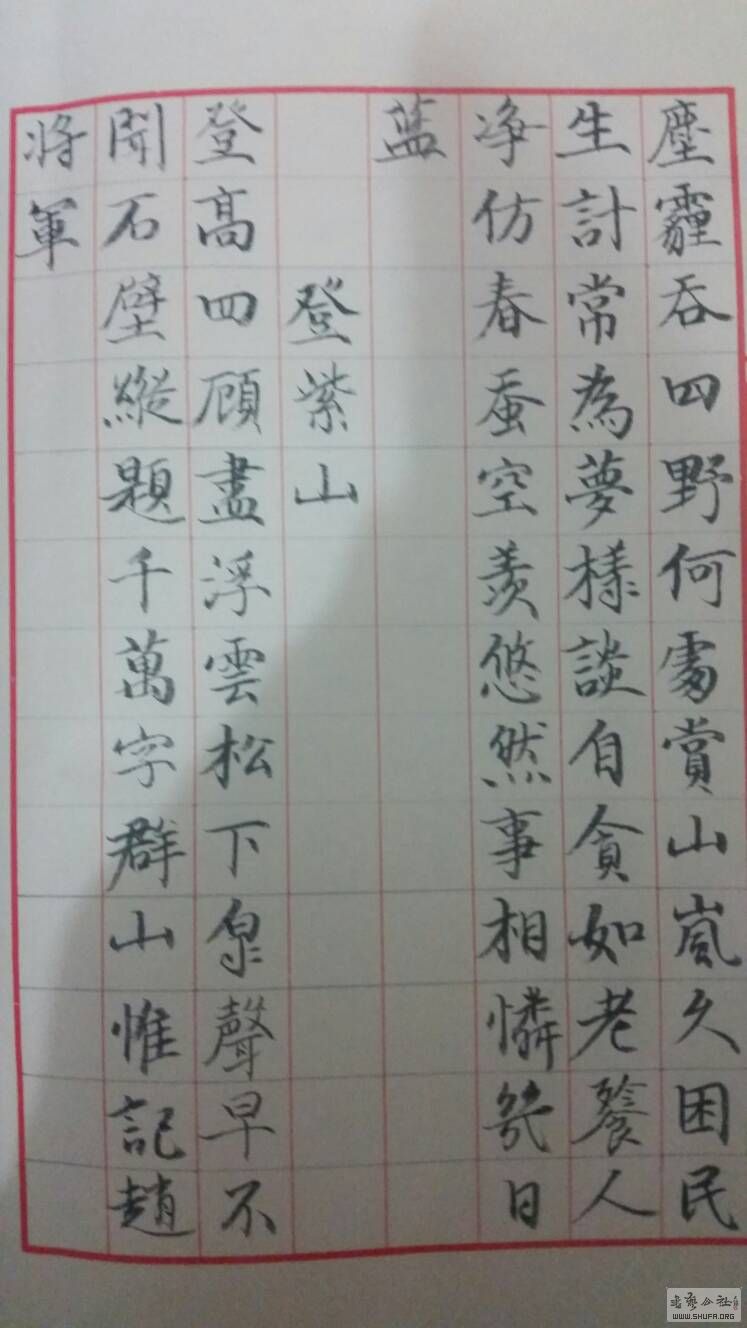 塵霾吞四野何處賞山嵐久困民
生計常為夢樣談自貪如老饕人
净仿春蚕空羨悠然事相憐幾日
蓝
登紫山
登高四顧盡浮雲松下泉聲早不
聞石壁縱題千萬字群山惟記趙
将軍
WWW.SHUFA.ORG